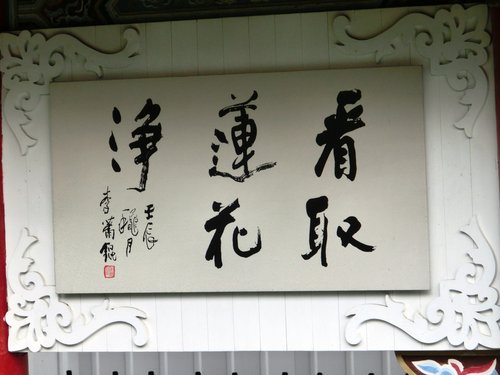 看取
蓮花
淨
壬辰
臘月
李蕭錕